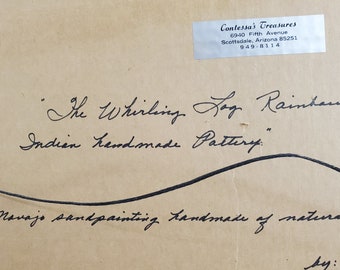 Contessa's Treasures
6940 Fifth Avenue
Scottsdale, Arizona 85251
949-8114
"The Whirling Log Rainbow
Indian handmade Pottery"
Navajo sandpainting handmade of natura
by: